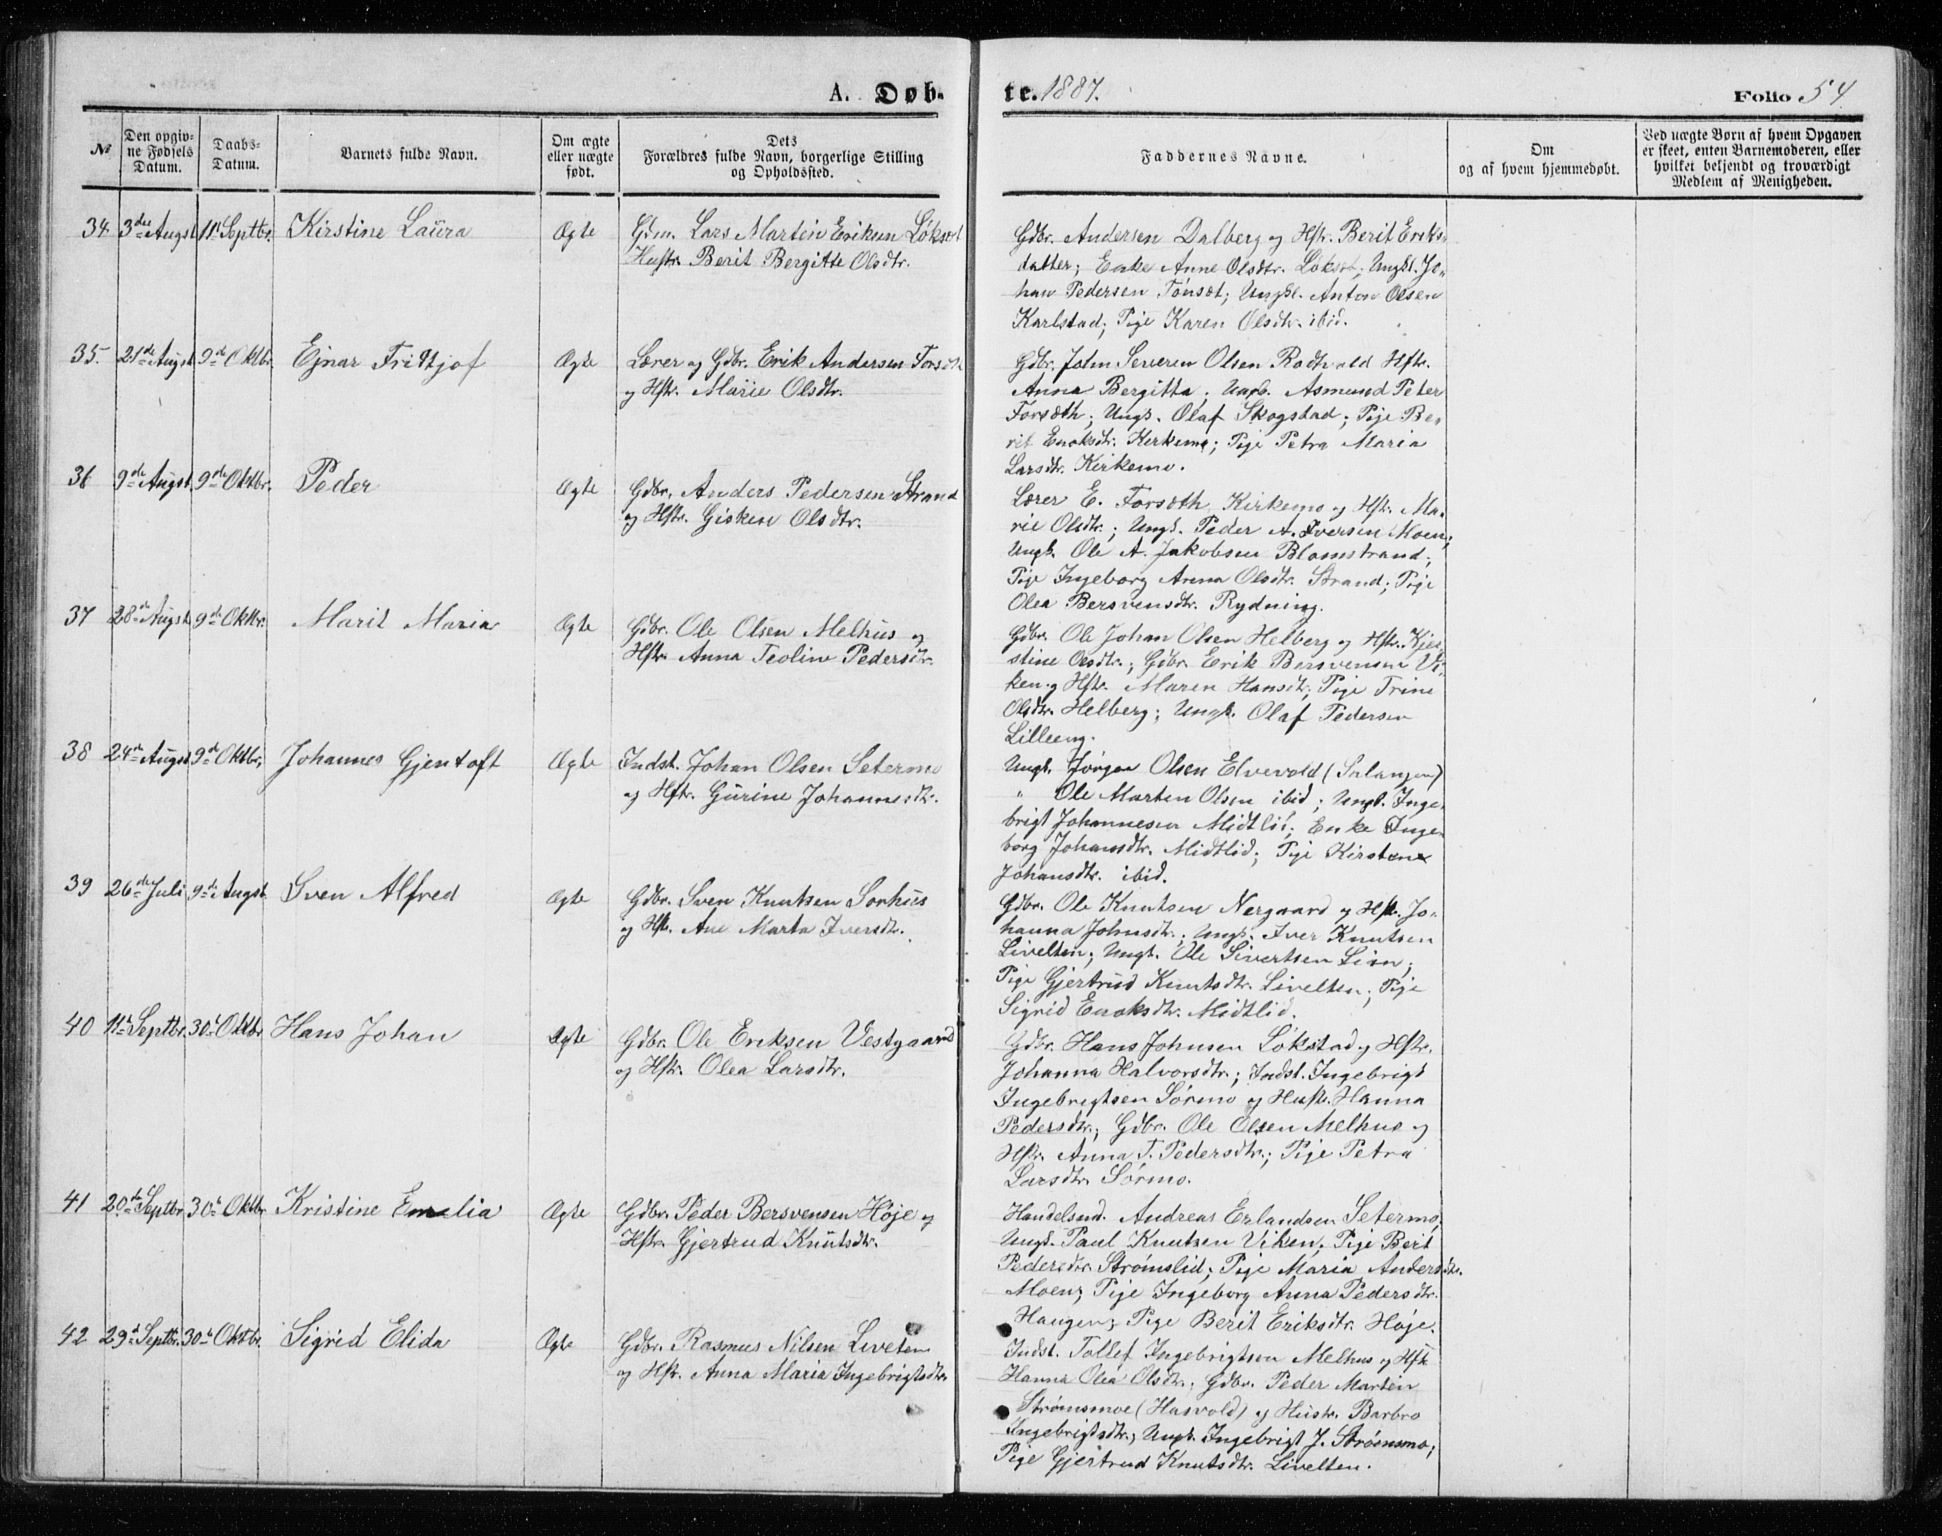 A. Døb-
te. 1887.
Folio 54
№
Den opgiv-
ne Fødsels
Datum.
Daabs-
Datum.
Barnets fulde Navn.
Om ægte
eller uægte
født.
Dets
Forældres fulde Navn, borgerlige Stilling
og Opholdssted.
Faddernes Navne.
Om
og af hvem hjemmedøbt.
Ved uægte Børn af hvem Opgaven
er skeet, enten Barnemoderen, eller
hvilket beljendt og troværdigt
Medlem af Menigheden.
34 3die Augst 11t Septbr. Kirstine Laura Ægte
Gdm. Lars Martin Eriksen Lökset
Hustr. Berit Bergitte Olsdtr.
Gdbr. Andersen Dalberg og Hstr. Berit Eriks-
datter; Enke Anne Olsdtr. Lökset; Ungk. Jo-
han Pedersen Tónset; Ungk. Anton Olsen
Karlstad; Pige Karen Olsdtr. ibid.
35. 21de Augst 9de Oktbr. Ejnar Fridtjof Ægte
Lærer og Gdbr. Erik Andersen Forseth
og Hstr. Marie Olsdtr.
Gdbr. John Severen Olsen Rodhvold Hstr.
Anna Bergitta; Ungk. Asmund Peter
Forsæth; Ungk. Olaf Skogstad; Pige Be-
rit Enoksdtr. Kirkemo; Pige Petra Maria
Larsdtr. Kirkemo.
36 9de Augst. 9de Oktbr. Peder Ægte
Gdbr. Anders Pedersen Strand
og Hstr. Gisken Olsdtr.
Lærer E. Forsæth Kirkemo og Hstr. Ma-
rie Olsdtr.; Ungk. Peder A. Iversen Moen;
Ungk. Ole A. Jakobsen Blomstrand;
Pige Ingeborg Anna Olsdtr. Strand; Pige
Olea Bersvensdtr. Rydning.
37 28de Augst 9de Oktbr. Marit Maria Ægte
Gdbr. Ole Olsen Melhus og
Hstr. Anna Teoline Pedersdtr.
Gdbr. Ole Johan Olsen Helberg og Hstr. Kjer-
stine Olsdtr.; Gdbr. Erik Bersvensen Vi-
ken og Hstr. Maren Hansdtr; Pige Trine
Olsdtr. Helberg; Ungk. Olaf Pedersen
Lilleeng.
38 24de Augst 9de Oktbr. Johannes Gjentoft Ægte
Indst. Johan Olsen Setermo
og Hstr. Gurine Johannesdtr.
Ungk. Jørgen Olsen Elvevold (Salangen)
" Ole Morten Olsen ibid; Ungk. Inge-
brigt Johannesen Midtlid; Enke Inge-
borg Johansdtr. Midtlid; Pige Kirstene
Johansdtr. ibid.
39 26de Juli 9de Augst Sven Alfred Ægte
Gdbr. Sven Knutsen Sorhus
og Hstr. Ane Marta Iversdtr.
Gdbr. Ole Knutsen Nergaard og Hstr. Jo-
hanna Johnsdtr.; Ungk. Iver Knutsen
Livelten; Ungk. Ole Sivertsen Lien;
Pige Gjertrud Knutsdtr. Livelten; Pige
Sigrid Enoksdtr. Midtlid.
40 11te Septbr. 30te Oktbr Hans Johan Ægte
Gdbr. Ole Eriksen Vestgaard
og Hstr. Olea Larsdtr.
Gdbr. Hans Johnsen Lökstad og Hstr.
Johanna Halvorsdtr.; Indst. Ingebrigt
Ingebrigtsen Sørmo og Hustr. Hanna
Pedersdtr.; Gdbr. Ole Olsen Melhus og
Hstr. Anna T. Pedersdtr.; Pige Petra
Larsdtr. Sørmo.
41 20de Septbr 30te Oktbr Kristine Emelia Ægte
Gdbr. Peder Bersvensen Höje og
Hstr. Gjertrud Knutsdtr.
Handelsmd. Andreas Erlandsen Setermo;
Ungk. Paul Knutsen Viken; Pige Berit
Pedersdtr Strömslid; Pige Maria Andersdtr.
Moen; Pige Ingeborg Anna Pedersdtr.
Haugen; Pige Berit Eriksdtr. Høje.
42 29d Septbr. 30te Oktbr. Sigrid Elida Ægte
Gdbr. Rasmus Nilsen Liveten
og Hstr. Anna Maria Ingebrigtsdtr.
Indst. Tollef Ingebrigtsen Melhus og Hstr
Hanna Olea Olsdtr. Gdbr. Peder Martin
Strømsmoe (Hasvold) og Hustr. Barbro
Ingebrigtsdtr.; Ungk. Ingebrigt J. Strömsmo;
Pige Gjertrud Knutsdtr. Livelten.